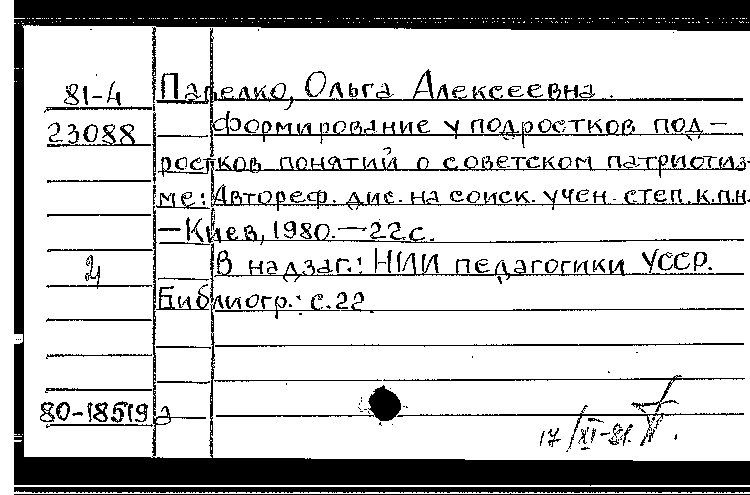 81-4
Павелко, Ольга Алексеевна.
23088
Формирование у подростков под-
ростков понятий о советском патриотиз-
ме: Автореф. дис. на соиск. учен. степ. к.п.н.
—Киев, 1980.—22с.
2
В надзаг.: НИИ педагогики УССР.
Библиогр.: с.22.
80-18519а
17/XI-81.